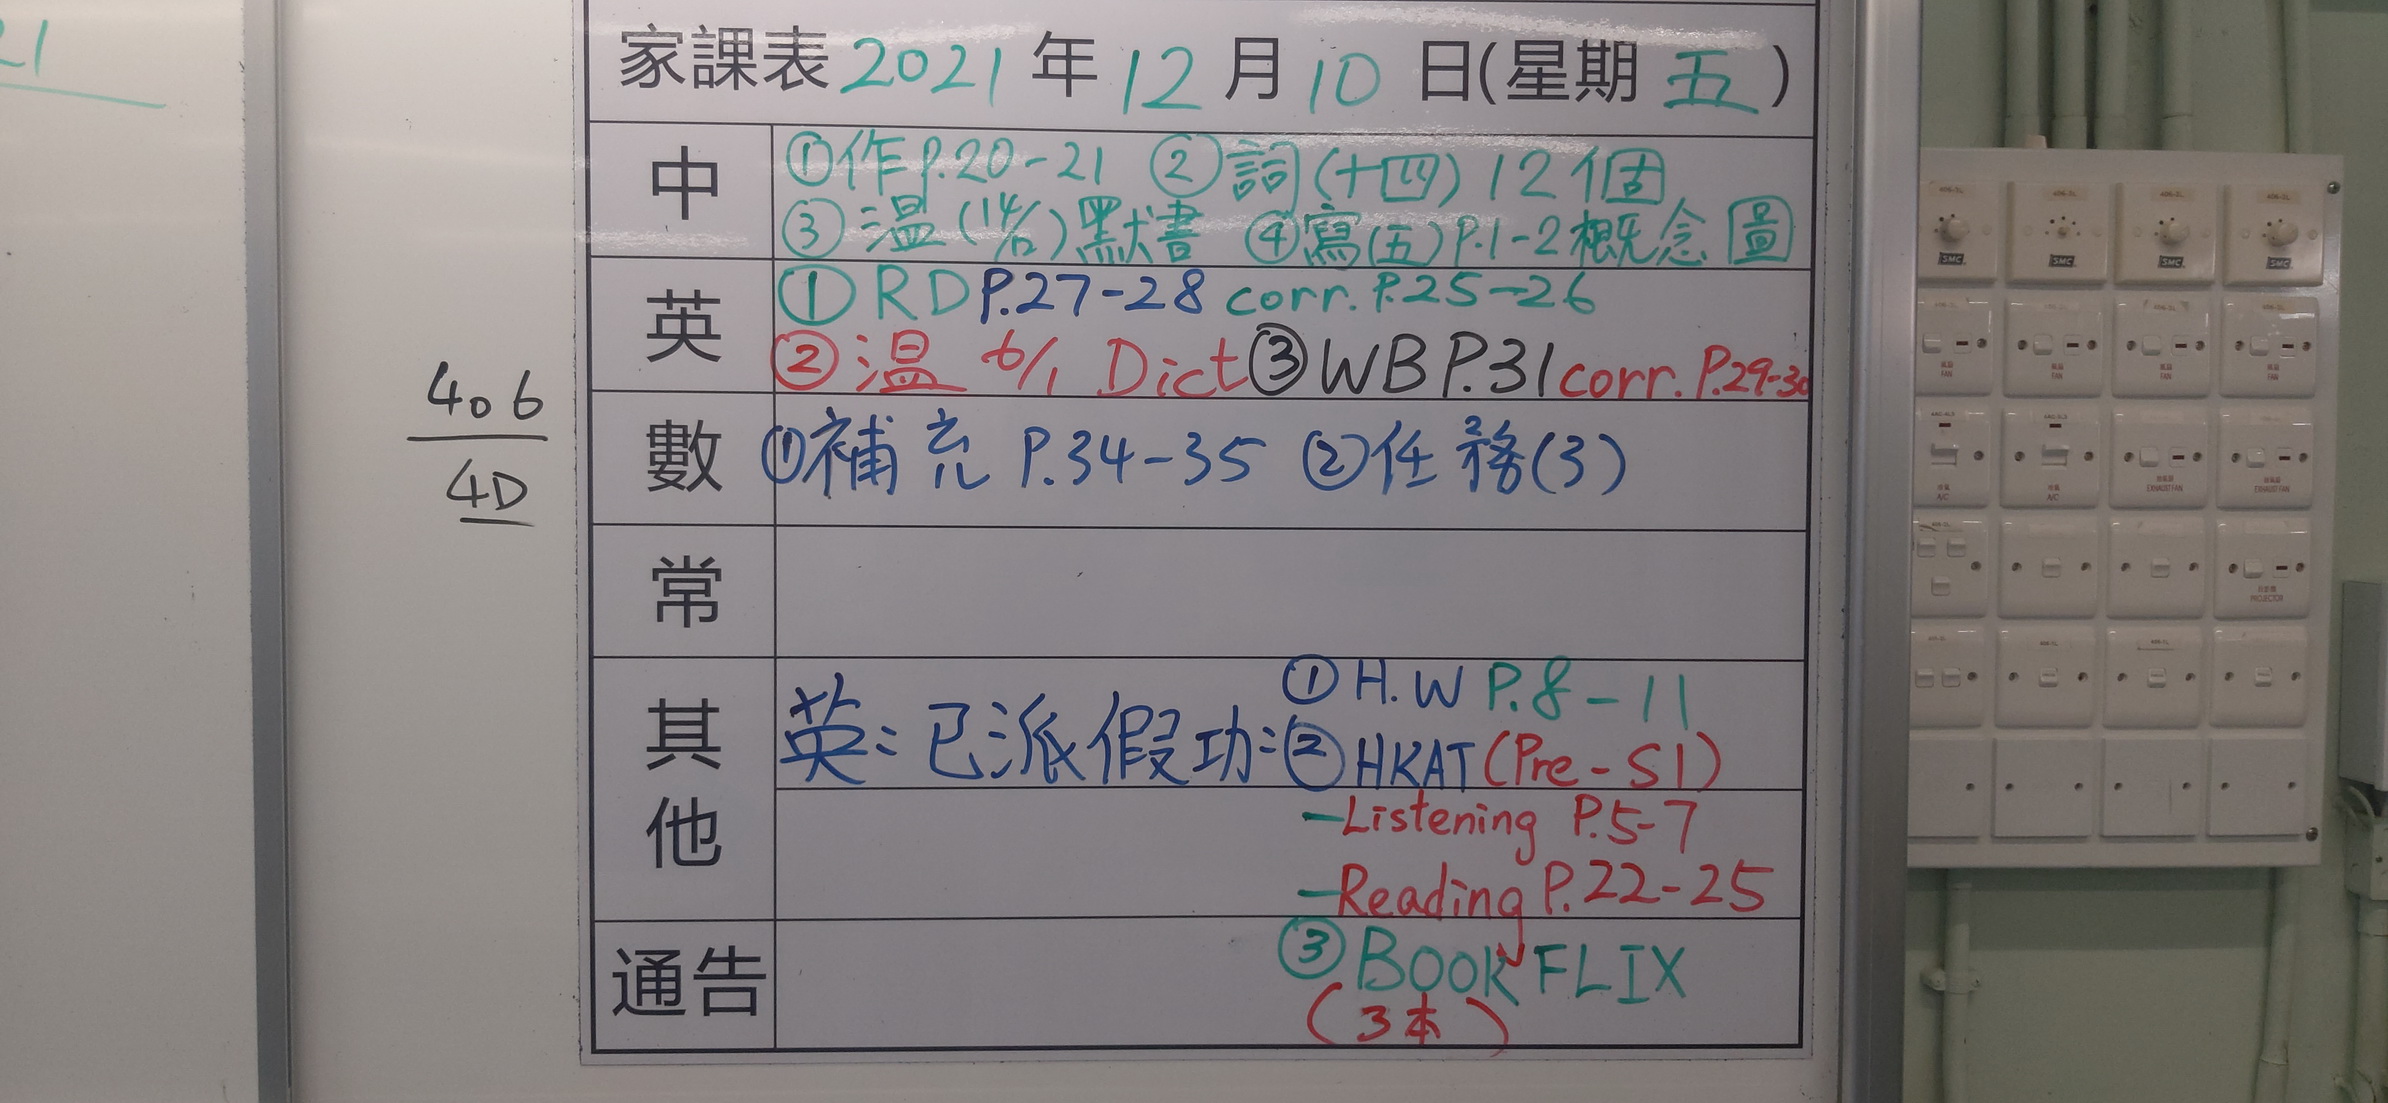 21
家課表 2021 年 12 月 10 日(星期 五)
中
①作P.20-21 ②詞(十四)12個
③溫(14/12)默書 ④寫(五)P.1-2概念圖
英
①RD P.27-28 corr. P.25-26
②溫 6/1 Dict ③WB P.31 corr. P.29-30
406
4D
數
①補充 P.34-35 ②任務(3)
常
其他
英:已派假功:①H.W P.8-11
②HKAT(Pre-S1)
-Listening P.5-7
-Reading P.22-25
通告
③BOOKFLIX
(3本)
SMC SMC SMC SMC
FAN FAN FAN FAN
A/C A/C EXHAUST FAN EXHAUST FAN
PROJECTOR